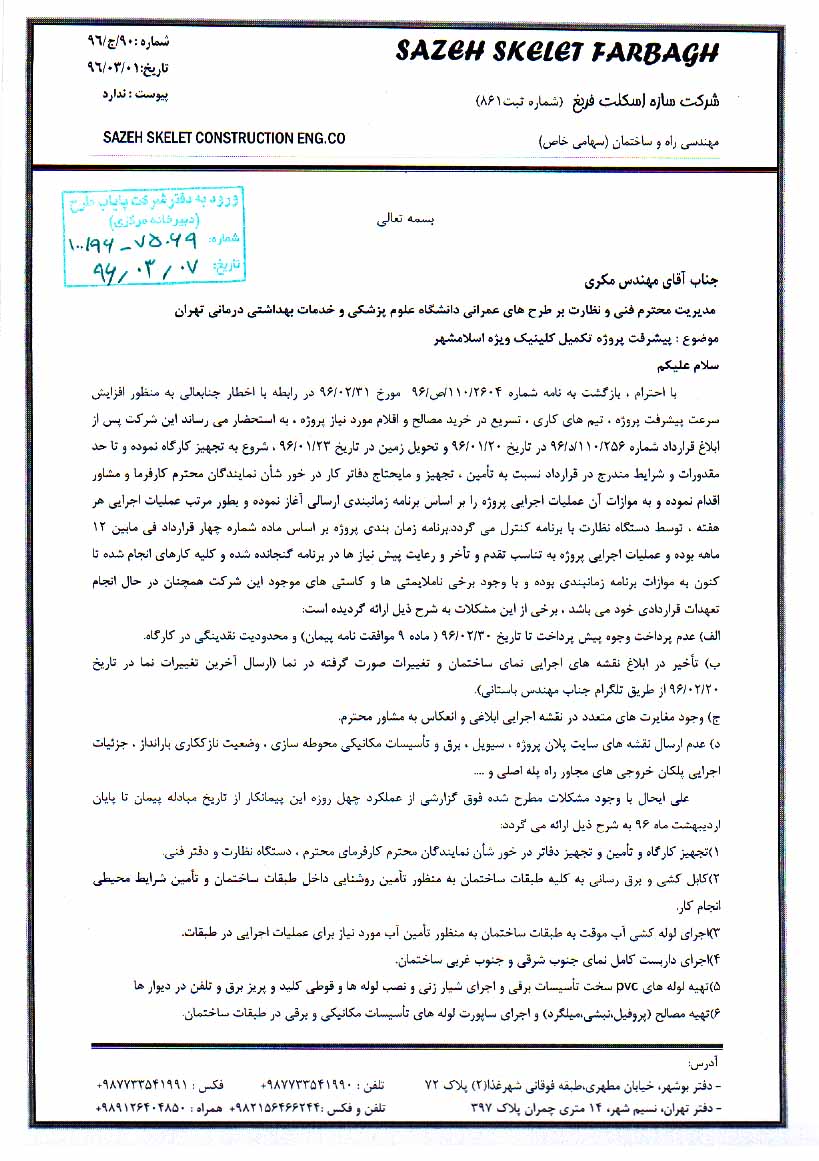 SAZEH SKELET FARBAGH
شماره :۹۰/ج/۹۶
تاریخ:۹۶/۰۳/۰۱
پیوست : ندارد
شرکت سازه اسکلت فربغ (شماره ثبت۸۶۱)
SAZEH SKELET CONSTRUCTION ENG.CO
مهندسی راه و ساختمان (سهامی خاص)
ورود به دفتر شرکت پایاب طرح
(دبیرخانه مرکزی)
شماره:
تاریخ: ۹۶/۰۳/۰۷
بسمه تعالی
جناب آقای مهندس مکری
مدیریت محترم فنی و نظارت بر طرح های عمرانی دانشگاه علوم پزشکی و خدمات بهداشتی درمانی تهران
موضوع : پیشرفت پروژه تکمیل کلینیک ویژه اسلامشهر
سلام علیکم
با احترام ، بازگشت به نامه شماره ۱۱۰/۲۶۰۴/ص/۹۶ مورخ ۹۶/۰۲/۳۱ در رابطه با اخطار جنابعالی به منظور افزایش
سرعت پیشرفت پروژه ، تیم های کاری ، تسریع در خرید مصالح و اقلام مورد نیاز پروژه ، به استحضار می رساند این شرکت پس از
ابلاغ قرارداد شماره ۱۱۰/۲۵۶/د/۹۶ در تاریخ ۹۶/۰۱/۲۰ و تحویل زمین در تاریخ ۹۶/۰۱/۲۳ ، شروع به تجهیز کارگاه نموده و تا حد
مقدورات و شرایط مندرج در قرارداد نسبت به تأمین ، تجهیز و مایحتاج دفاتر کار در خور شأن نمایندگان محترم کارفرما و مشاور
اقدام نموده و به موازات آن عملیات اجرایی پروژه را بر اساس برنامه زمانبندی ارسالی آغاز نموده و بطور مرتب عملیات اجرایی هر
هفته ، توسط دستگاه نظارت با برنامه کنترل می گردد.برنامه زمان بندی پروژه بر اساس ماده شماره چهار قرارداد فی مابین ۱۲
ماهه بوده و عملیات اجرایی پروژه به تناسب تقدم و تأخر و رعایت پیش نیاز ها در برنامه گنجانده شده و کلیه کارهای انجام شده تا
کنون به موازات برنامه زمانبندی بوده و با وجود برخی ناملایمتی ها و کاستی های موجود این شرکت همچنان در حال انجام
تعهدات قراردادی خود می باشد ، برخی از این مشکلات به شرح ذیل ارائه گردیده است:
الف) عدم پرداخت وجوه پیش پرداخت تا تاریخ ۹۶/۰۲/۳۰ ( ماده ۹ موافقت نامه پیمان) و محدودیت نقدینگی در کارگاه.
ب) تأخیر در ابلاغ نقشه های اجرایی نمای ساختمان و تغییرات صورت گرفته در نما (ارسال آخرین تغییرات نما در تاریخ
۹۶/۰۲/۲۰ از طریق تلگرام جناب مهندس باستانی).
ج) وجود مغایرت های متعدد در نقشه اجرایی ابلاغی و انعکاس به مشاور محترم.
د) عدم ارسال نقشه های سایت پلان پروژه ، سیویل ، برق و تأسیسات مکانیکی محوطه سازی ، وضعیت نازککاری بارانداز ، جزئیات
اجرایی پلکان خروجی های مجاور راه پله اصلی و ....
علی ایحال با وجود مشکلات مطرح شده فوق گزارشی از عملکرد چهل روزه این پیمانکار از تاریخ مبادله پیمان تا پایان
اردیبهشت ماه ۹۶ به شرح ذیل ارائه می گردد:
۱)تجهیز کارگاه و تأمین و تجهیز دفاتر در خور شأن نمایندگان محترم کارفرمای محترم ، دستگاه نظارت و دفتر فنی.
۲)کابل کشی و برق رسانی به کلیه طبقات ساختمان به منظور تأمین روشنایی داخل طبقات ساختمان و تأمین شرایط محیطی
انجام کار.
۳)اجرای لوله کشی آب موقت به طبقات ساختمان به منظور تأمین آب مورد نیاز برای عملیات اجرایی در طبقات.
۴)اجرای داربست کامل نمای جنوب شرقی و جنوب غربی ساختمان.
۵)تهیه لوله های pvc سخت تأسیسات برقی و اجرای شیار زنی و نصب لوله ها و قوطی کلید و پریز برق و تلفن در دیوار ها
۶)تهیه مصالح (پروفیل،نبشی،میلگرد) و اجرای ساپورت لوله های تأسیسات مکانیکی و برقی در طبقات ساختمان.
آدرس:
- دفتر بوشهر، خیابان مطهری،طبقه فوقانی شهرغذا(۲) پلاک ۷۲ تلفن : ۹۸۷۷۳۳۵۴۱۹۹۰+ فکس : ۹۸۷۷۳۳۵۴۱۹۹۱+
- دفتر تهران، نسیم شهر، ۱۴ متری چمران پلاک ۳۹۷ تلفن و فکس :۹۸۲۱۵۶۴۶۶۲۴۴+ همراه : ۹۸۹۱۲۶۴۰۴۸۵۰+